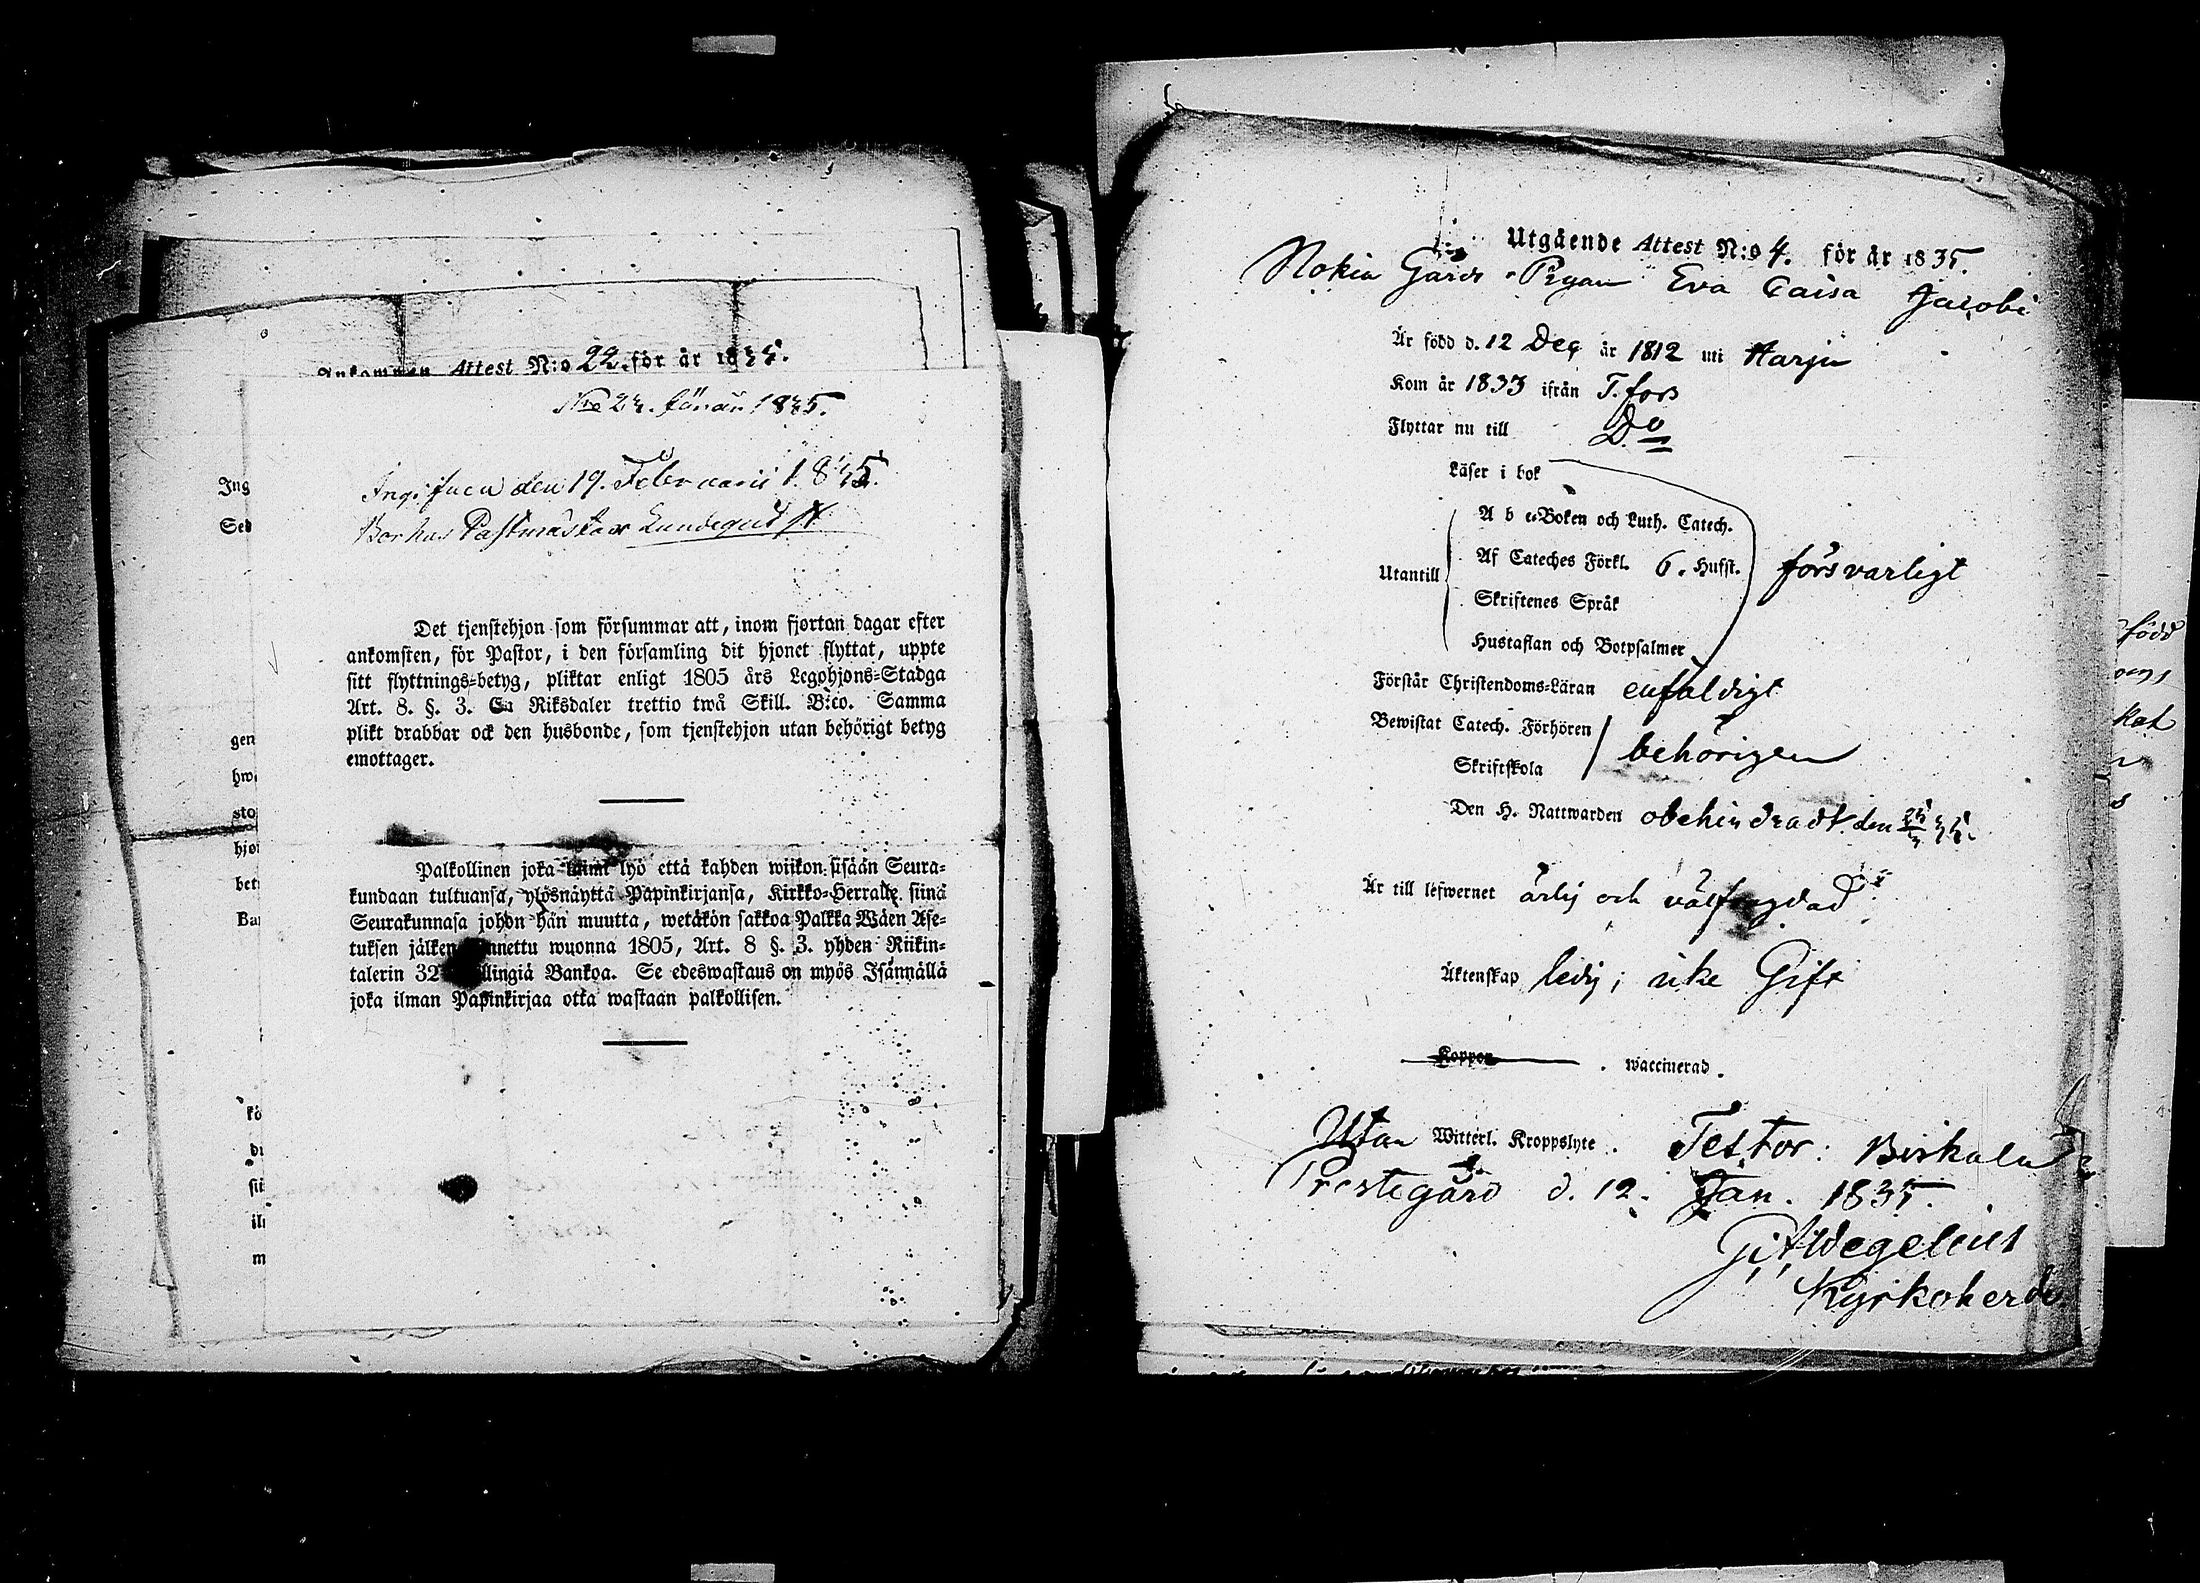 Ankommen Attest N:o 22 för år 1835.
N:o 23. för år 1835.
Ing
Sed
Ingifven den 19. Februarii 1835.
Borhus Pastmästar Lundeqvist
Det tjenstehjon som försummar att, inom fjorton dagar efter
ankomsten, för Pastor, i den församling dit hjonet flyttat, uppte
sitt flyttnings-betyg, pliktar enligt 1805 års Legohjons-Stadga
Art. 8. §. 3. En Riksdaler trettio twå Skill. B:co. Samma
plikt drabbar ock den husbonde, som tjenstehjon utan behörigt betyg
emottager.
gen
hw
sto
hjo
bet
Ba
Palkollinen joka laimi lyö että kahden wiikon sisään Seura-
kundaan tultuansa, ylösnäyttä Papinkirjansa, Kirkko-Herralle siinä
Seurakunnasa johon hän muutta, wetäkön sakkoa Palkka Wäen Ase-
tuksen jälken annettu wuonna 1805, Art. 8 §. 3. yhden Riikin-
talerin 32 killingiä Bankoa. Se edeswastaus on myös Isännällä
joka ilman Papinkirjaa otta wastaan palkollisen.
kö
du
sii
il
m
Utgående Attest N:o 4. för år 1835.
Nokia Gårds Pigan Eva Caisa Jacobi
Är född d. 12 Dec år 1812 uti Harju
Kom år 1833 ifrån T.fors
Flyttar nu till Do
Läser i bok
A b c-Boken och Luth. Catech.
Utantill Af Cateches Förkl. 6. Hufst. försvarligt
Skriftenes Språk
Hustaflan och Botpsalmer
Förstår Christendoms-Läran enfaldigt
Bewistat Catech. Förhören
Skriftskola behörigen
Den H. Nattwarden obehindradt. den
Är till lefwernet ärlig och välfrägdad
Äktenskap ledig; icke Gift
Koppor waccinerad.
Utan Witterl. Kroppslyte. Testor: Birkala
Prestegård d. 12. Jan. 1835.
G: A: Wegelius
Kyrkoherde
född
kat